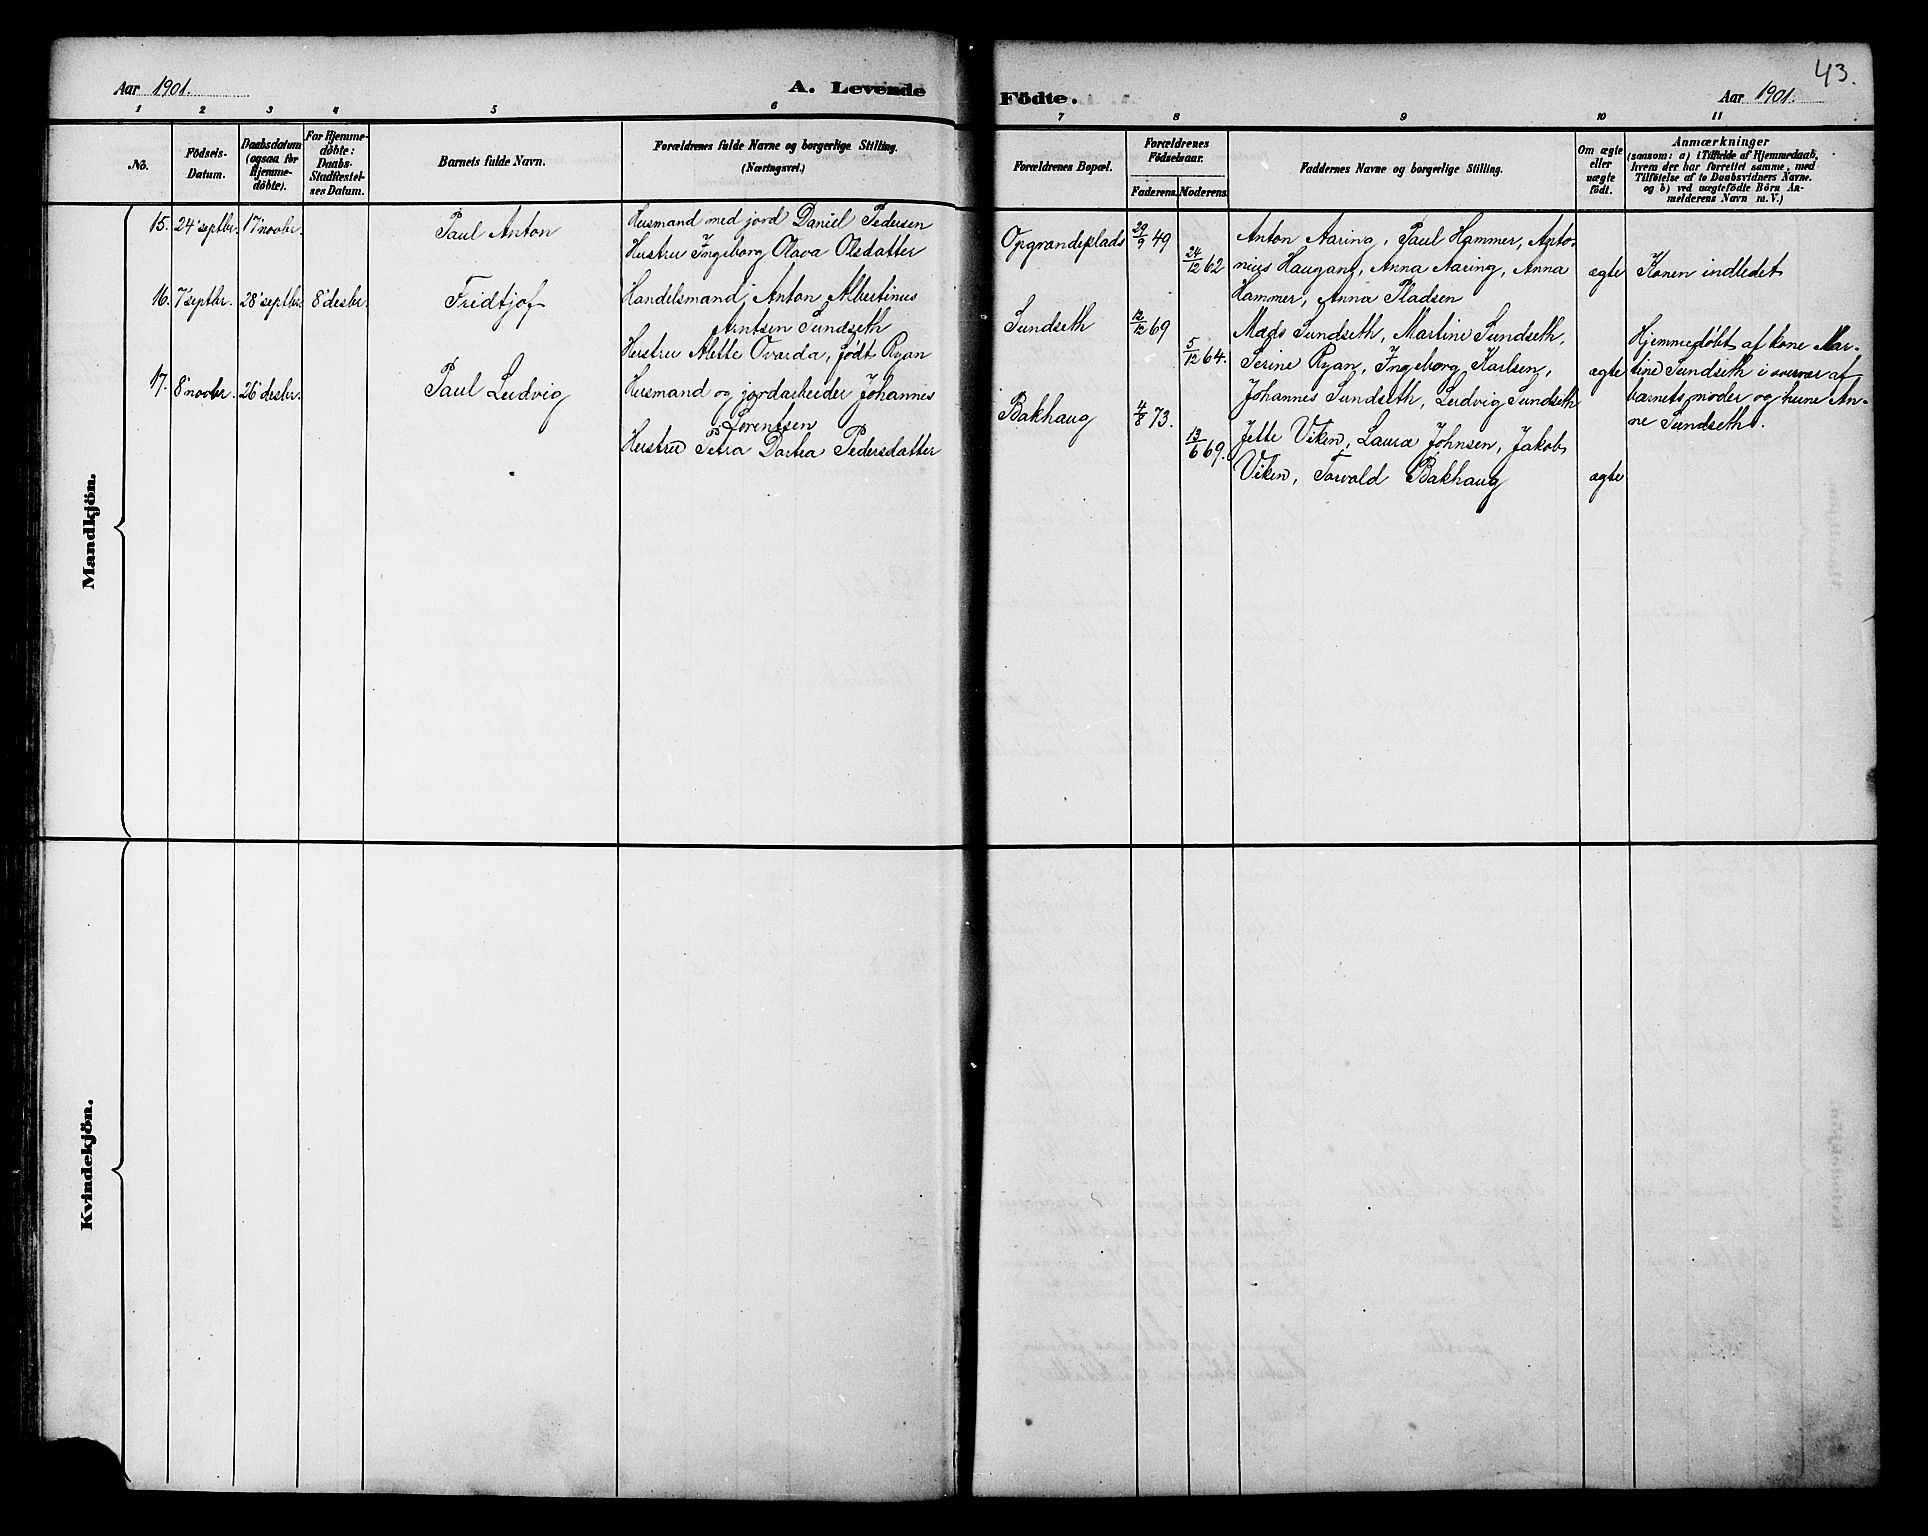 Aar 1901. A. Levende Födte. Aar 1901. 43.
1 2 3 4 5 6 7 8 9 10 11
No.
Födsels-
Datum.
Daabsdatum
(ogsaa for
Hjemme-
döbte).
For Hjemme-
döbte:
Daabs-
Stadfæstel-
ses Datum.
Barnets fulde Navn.
Forældrenes fulde Navne og borgerlige Stilling.
(Næringsvei.)
Forældrenes Bopæl.
Forældrenes
Födselsaar.
Faderens. Moderens.
Faddernes Navne og borgerlige Stilling.
Om ægte
eller
uægte
födt.
Anmærkninger
(saasom: a) i Tilfælde af Hjemmedaab,
hvem der har forrettet samme, med
Tilföielse af to Daabsvidners Navne.
og b) ved uægtefödte Börn An-
melderens Navn m. V.)
Mandkjön.
15. 24' septbr. 17' novbr. Paul Anton
Husmand med jord Daniel Pedersen
Hustru Ingeborg Olava Olsdatter
Opgrandeplads 29/9 49 24/12 62
Anton Aaring, Paul Hammer, Anto-
nius Haugan, Anna Aaring, Anna
Hammer, Anna Pladsen
ægte Konen indledet
16. 7' septbr. 28' septbr. 8' desbr. Fridtjof
Handelsmand Anton Albertinus
Arntsen Sundseth
Hustru Alette Ovarda, født Ryan
Sundseth 12/12 69 5/12 64.
Mads Sundseth, Martine Sundseth,
Serine Ryan, Ingeborg Karlsen,
Johannes Sundseth, Ludvig Sundseth
ægte
Hjemmedøbt af kone Mar-
tine Sundseth i overvær af
barnets moder og kone An-
ne Sundseth.
17. 8' novbr. 26' desbr. Paul Ludvig
Husmand og jordarbeider Johannes
Lorentsen
Hustru Petra Dortea Pedersdatter
Bakhaug 4/8 73. 13/6 69.
Jette Viken, Laura Johnsen, Jakob
Viken, Torvald Bakhaug
ægte
Kvindekjön.